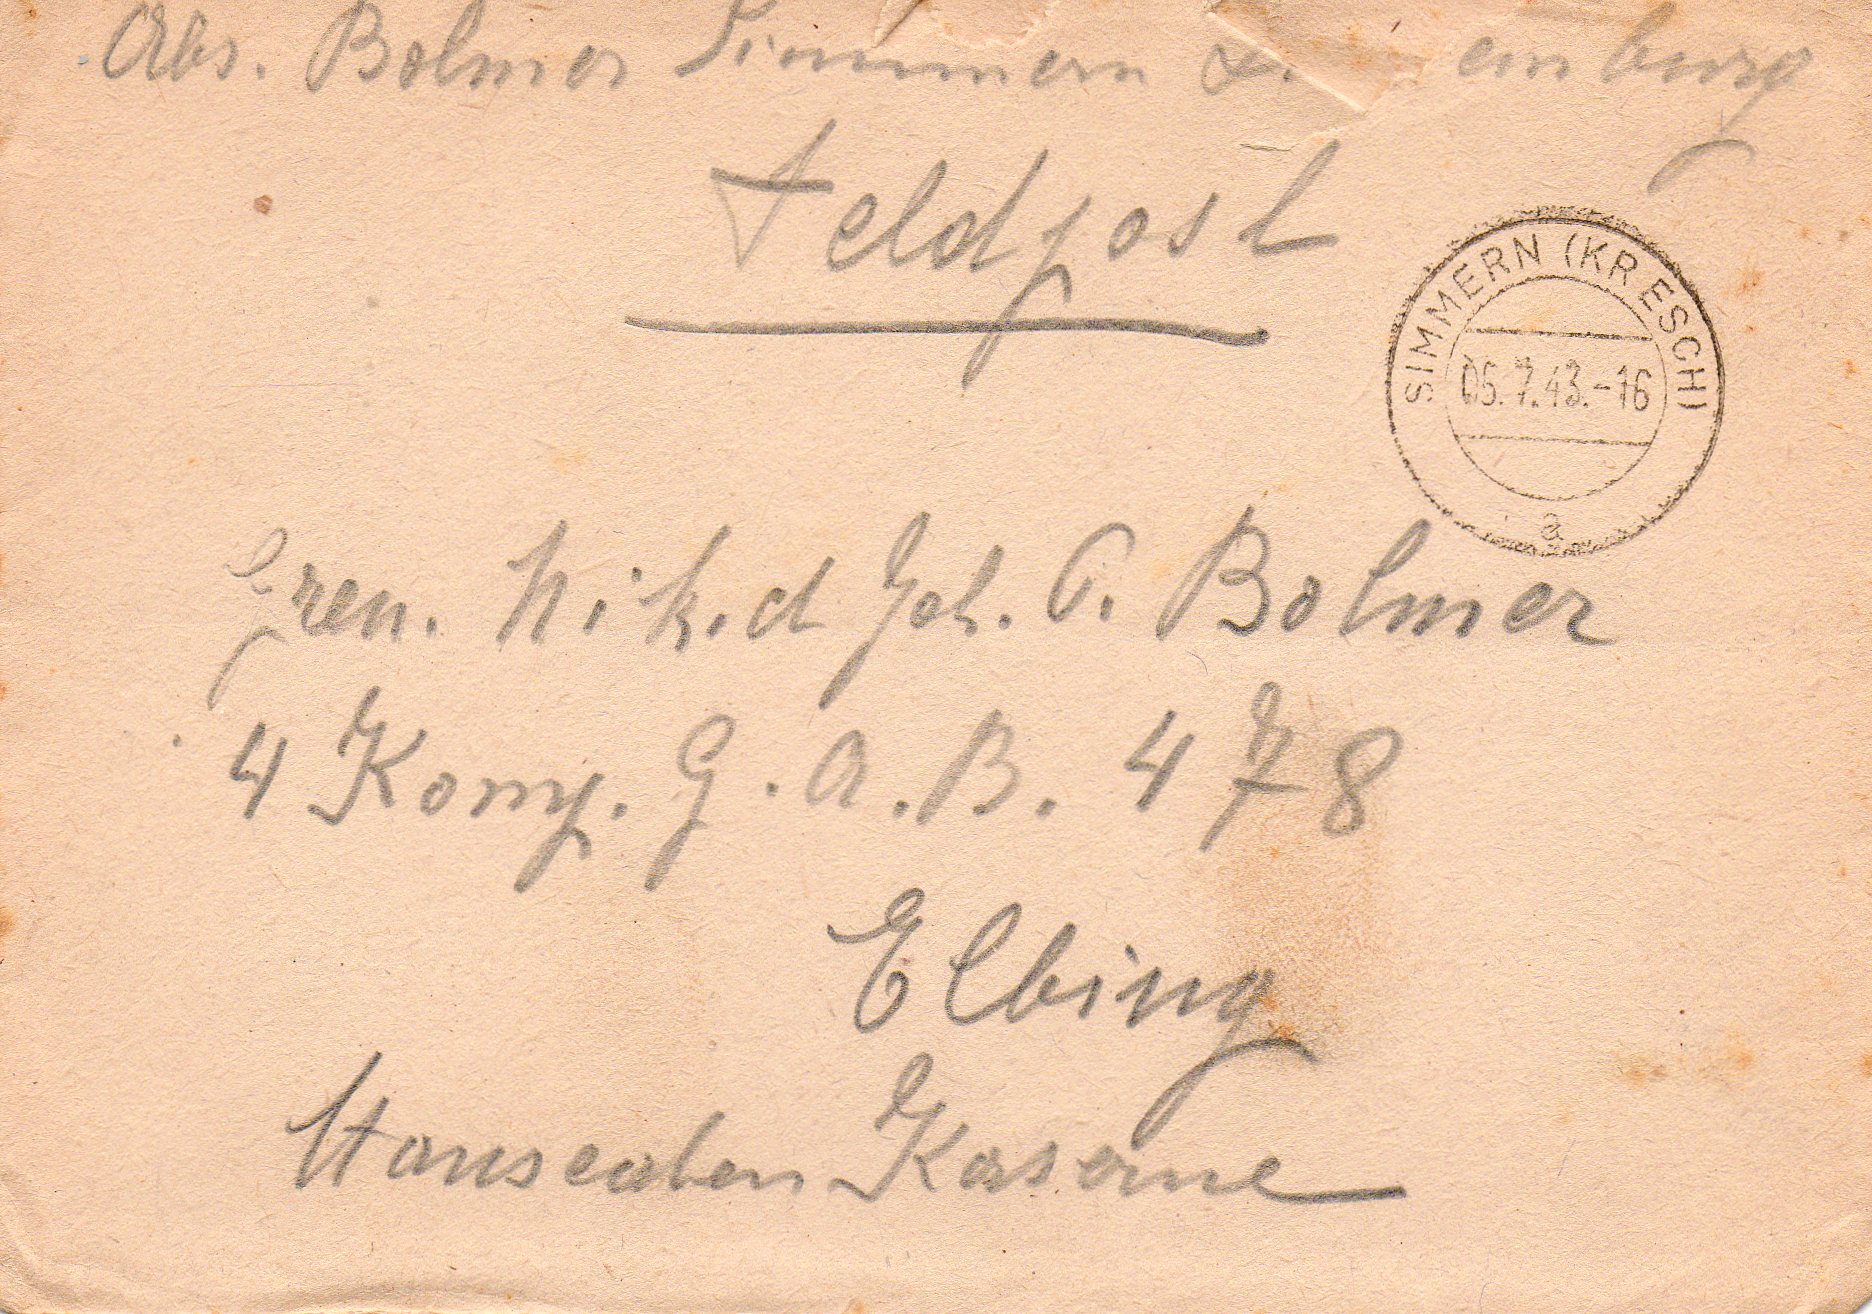 Abs. Bolmer Simmern
Feldpost
SIMMERN (KR ESCH)
05.7.43.-16
a
Gren. Nik.d Joh. P. Bolmer
4 Komp. G. A. B. 478
Elbing
Hanseaten Kaserne